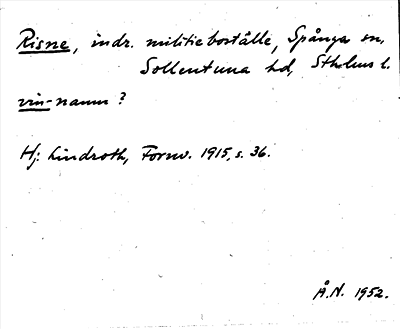 Risne, indr. militieboställe, Spånga sn,
Sollentuna hd, Sthlms l.
vin-namn?
Hj. Lindroth, Fornv. 1915, s. 36.
Å.N. 1952.